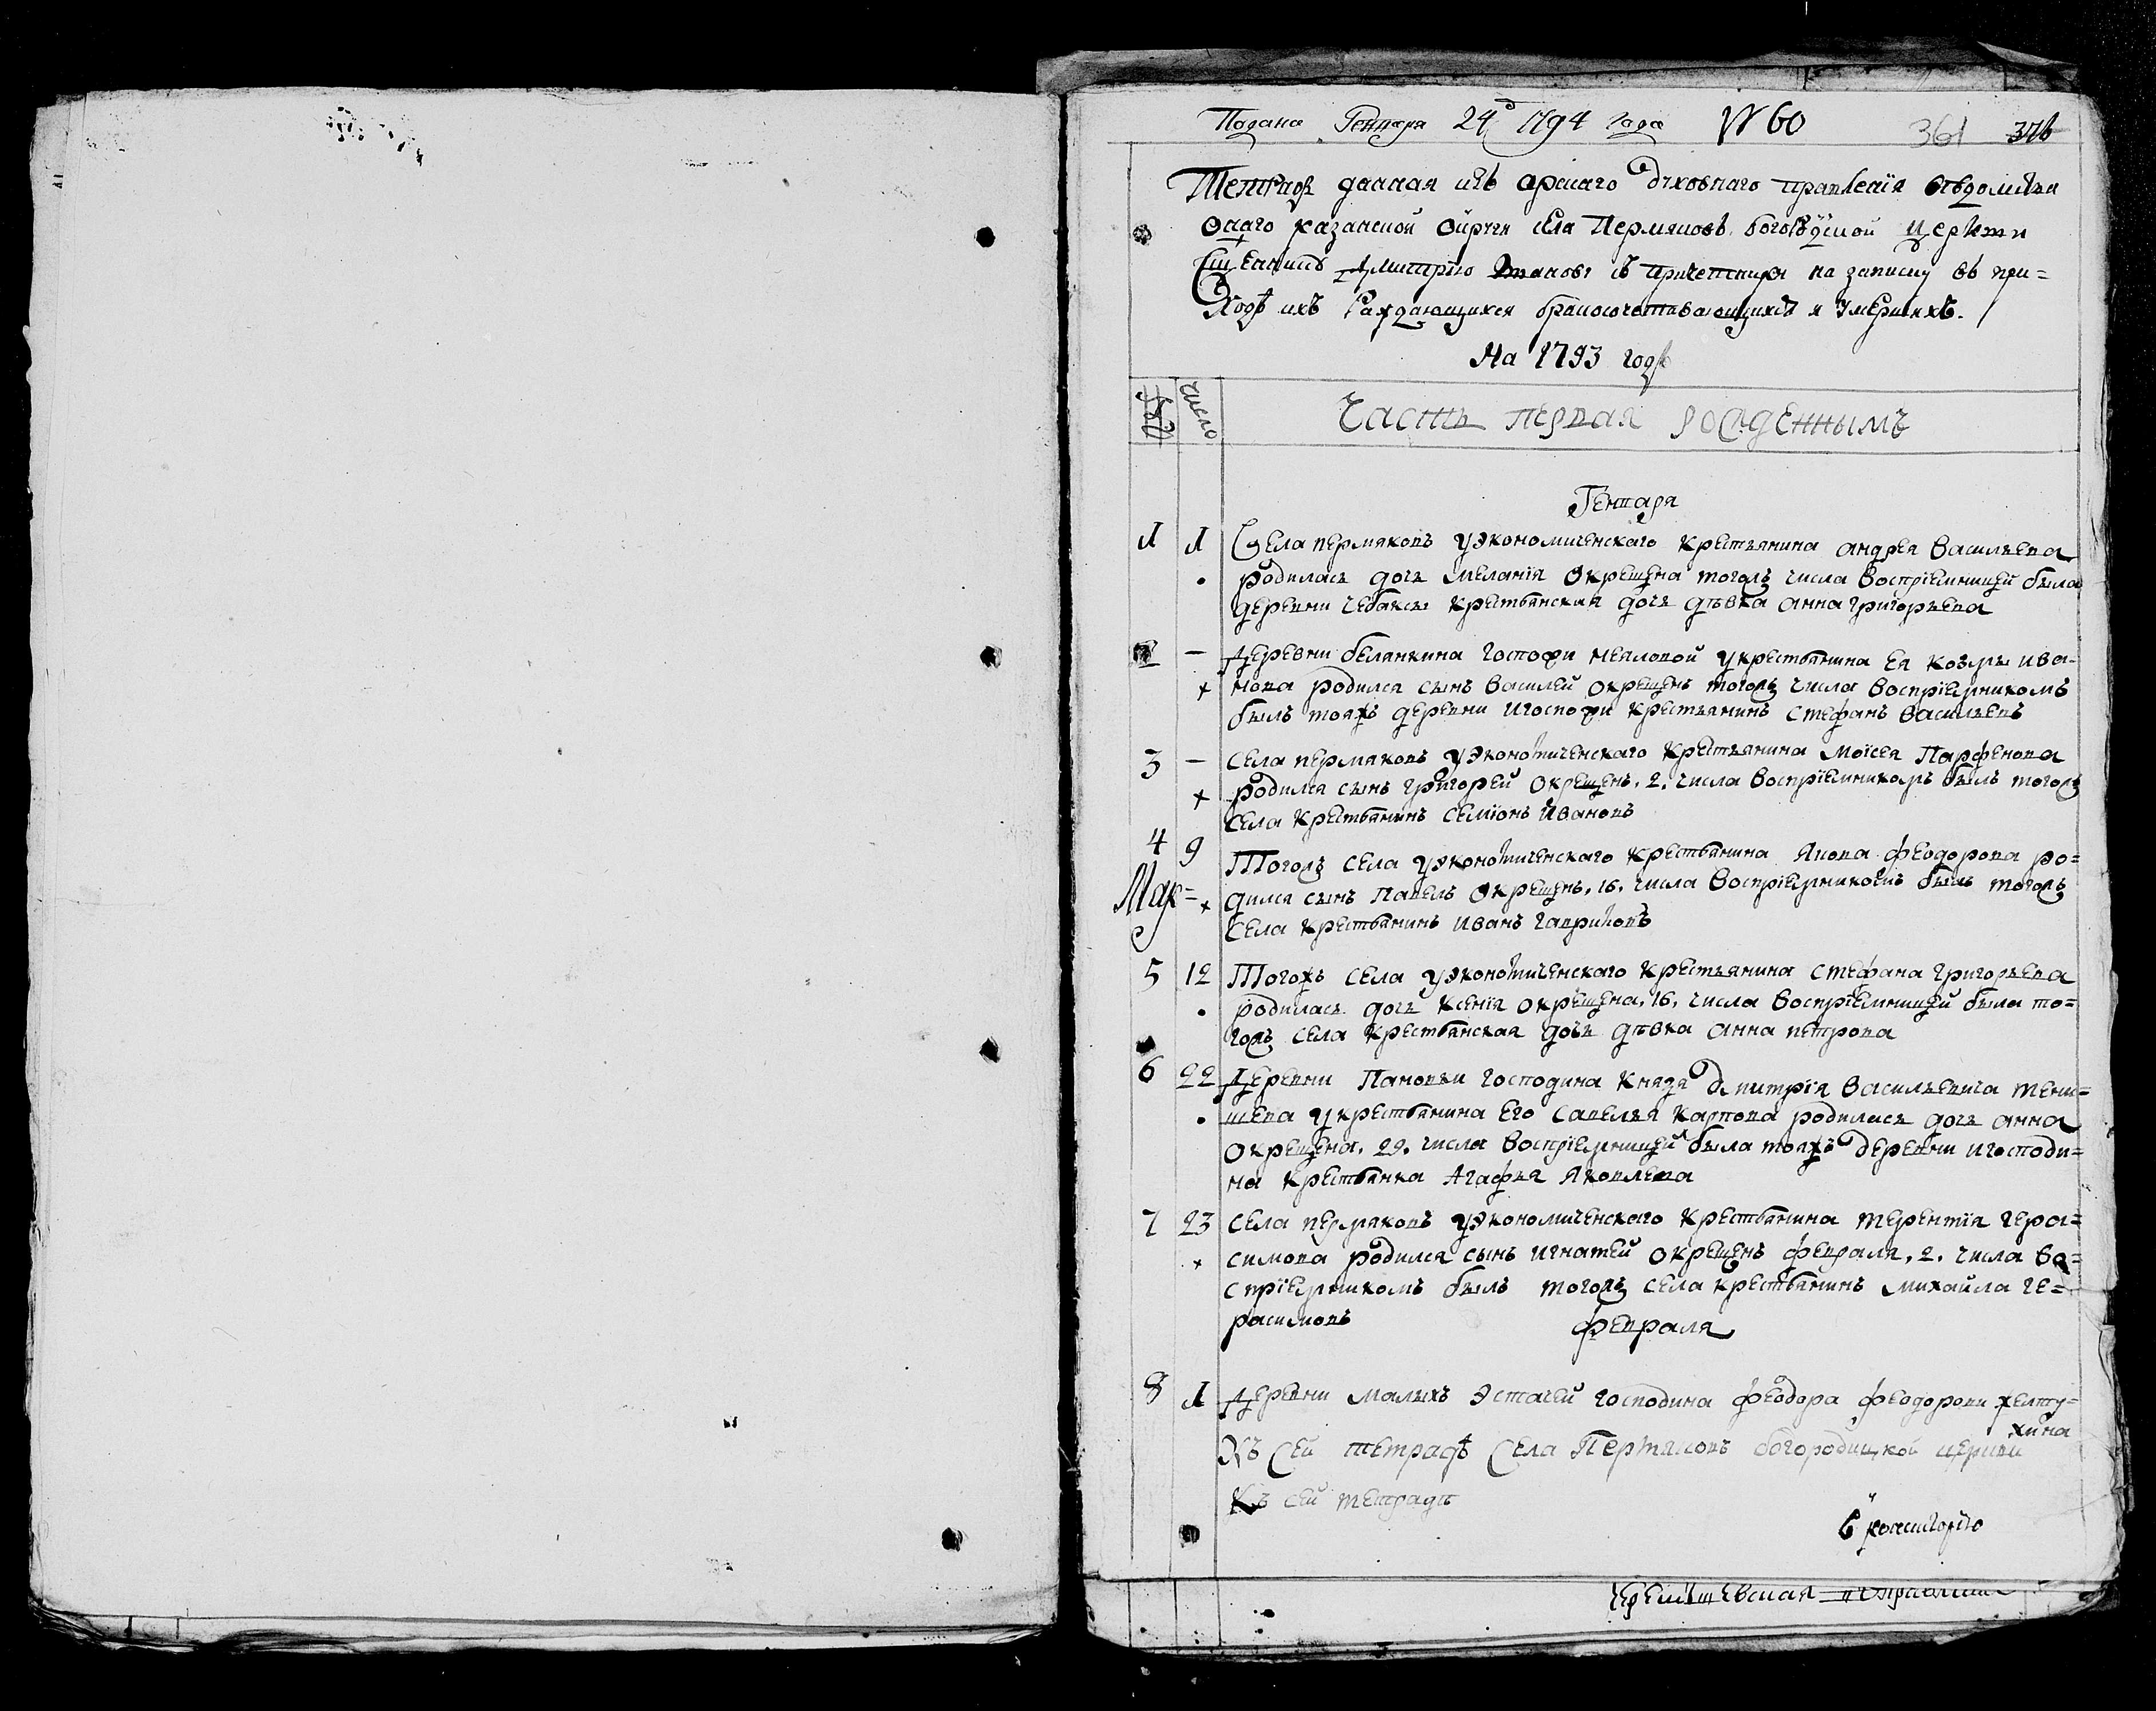 Подана Генваря 24д 1794 года № 60 361 376
Тетрадь данная изъ арскаго духовнаго правленія вѣдомства
онаго казанской округи села Пермяковъ богородской церкви
Сщенникѣ Дмитрію съ причетники на записку въ при=
ходѣ ихъ Раждающихся бракосочетавающихся и Умершихъ.
На 1793 годъ
число
Часть первая рожденнымъ
Генваря
1 1 Села пермяковъ уэкономическаго крестьянина андрея Васильева
родилась дочь Меланія Окрещена тогожъ числа Воспріемницей была
деревни чебаксы крестьянская дочь дѣвка анна григорьева
2 – Деревни беланкина госпожи нееловой укрестьянина ея козмы ива-
× нова родился сынъ Василей окрещенъ тогожъ числа Воспріемникомъ
былъ тояжъ деревни игоспожи крестьянинъ стефанъ васильевъ
3 – Села пермяковъ уэкономическаго крестьянина Моісея Парфенова
× родился сынъ григорей Окрещенъ. 2. числа Воспріемникомъ былъ тогожъ
села крестьянинъ семіонъ Ивановъ
4 9 Тогожъ села уэкономическаго крестьянина Якова феодорова ро=
Мар= × дился сынъ Павелъ Окрещенъ. 16. числа Воспріемникомъ былъ тогожъ
села крестьянинъ иванъ гавриловъ
5 12 Тогожъ села уэкономическаго крестьянина стефана григорьева
родилась дочь ксенія окрещена. 16. числа Воспріемницей была то=
гожъ села крестьянская дочь дѣвка анна петрова
6 22 Деревни Пановки господина князя дмитрія Васильевича тени=
шева укрестьянина его савелья карпова родилась дочь анна
окрещена. 29. числа Воспріемницей была тояжъ деревни игосподи=
на крестьянка Агафья Яковлева
7 23 Села пермяковъ уэкономическаго крестьянина терентія гера=
× симова родился сынъ игнатей окрещенъ февраля. 2. числа Во=
спріемникомъ былъ тогожъ села крестьянинъ михайла ге=
расимовъ
февраля
8 1 Деревни малыхъ Эстачей господина феодора феодорови желту=
хина
Къ Сей тетрадѣ Села Пермяковъ богородицкой церкви
Къ сей тетради
В консисторію